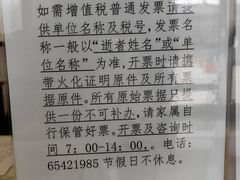 如需增值税普通发票请提
供单位名称及税号，发票名
称一般以“逝者姓名”或“单
位名称”为准，开票时请携
带火化证明原件及所有票
据原件。所有原始票据只提
供一份不可补办，请家属自
行保管好票。开票及咨询时
间 7：00-14：00,。电话：
65421985 节假日不休息。